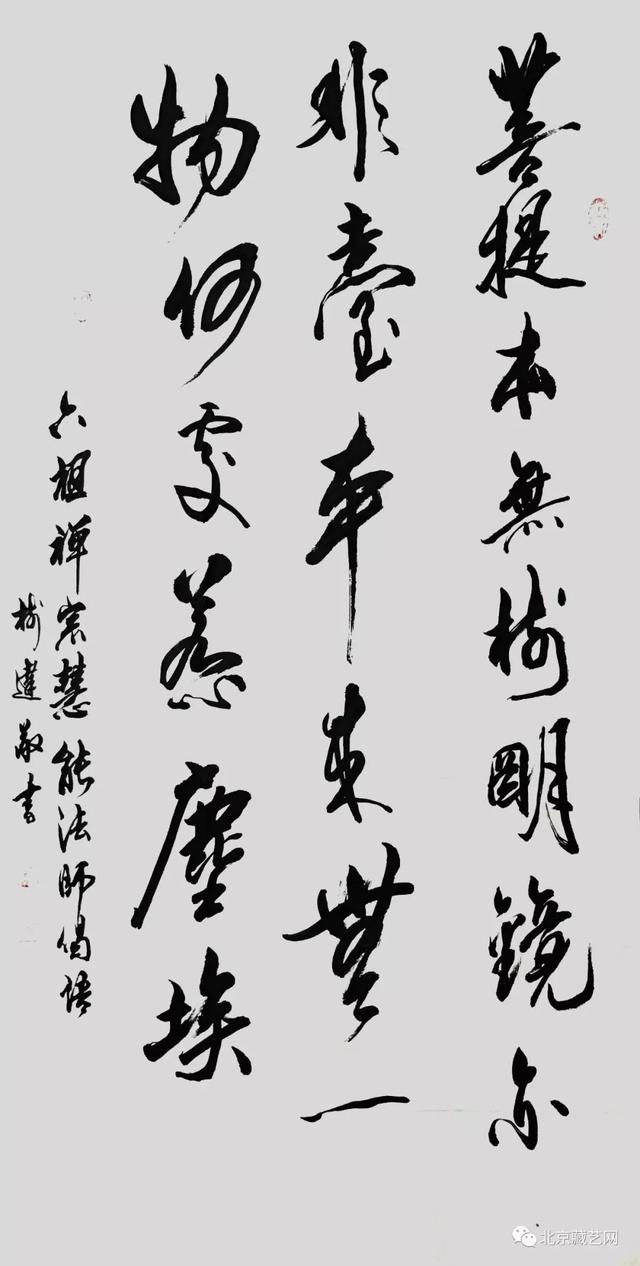 菩提本無樹明鏡亦
非臺本來無一
物何處惹塵埃
六祖禅宗慧能法師偈语
樹達敬書
北京藏艺网